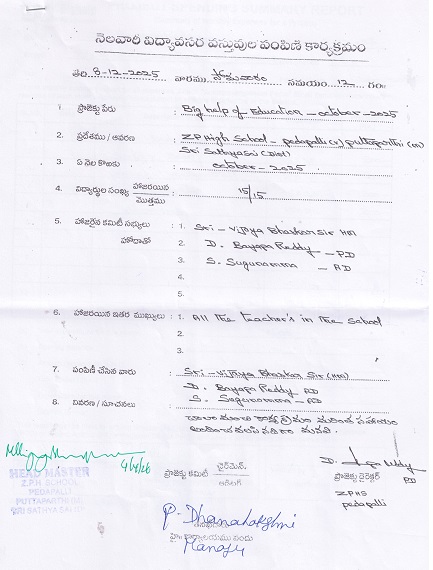 నెలవారీ విద్యావసర వస్తువుల పంపిణి కార్యక్రమం
తేది. 8-12-2025 వారము సోమవారం సమయం 12 గం
1. ప్రాజెక్టు పేరు : Big help of Education - october - 2025
2. ప్రదేశము / ఆవరణ : ZP High School - pedapalli (v) puttaparthi (m)
Sri Sathyasai (Dist)
3. ఏ నెల కొఱకు : october - 2025
4. విద్యార్థుల సంఖ్య హాజరయిన / మొత్తము : 15/15
5. హాజరైన కమిటీ సభ్యులు : 1. Sri - Vijaya Bhaskar Sir HM
హోదాతో 2. D. Bayapa Reddy - PD
3. S. Sugunamma - AD
4.
5.
6. హాజరయిన ఇతర ముఖ్యులు : 1. All the teacher's in the school
2.
3.
7. పంపిణీ చేసిన వారు : Sri - Vijaya Bhaskar Sir (HM)
D. Bayapa Reddy PD
8. వివరణ / సూచనలు : S. Sugunamma - AD
9/4/26
HEAD MASTER
Z.P.H SCHOOL
PEDAPALLI
PUTTAPARTHI
SRI SATHYA SAI
ప్రాజెక్టు కమిటీ
చైర్మెన్.
D. Bayapa Reddy
PD
ప్రాజెక్టు డైరెక్టర్
ZPHS
pedapalli
P. Dhanalakshmi